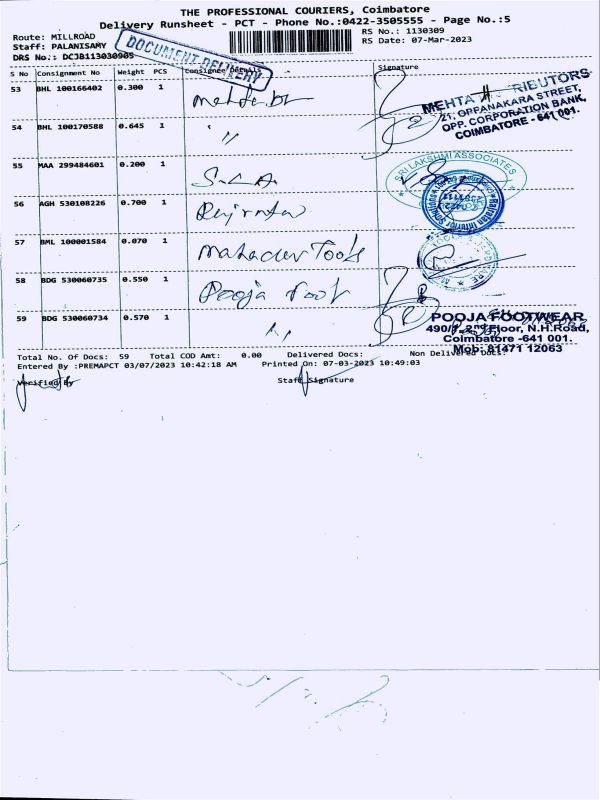 THE PROFESSIONAL COURIERS, Coimbatore
Delivery Runsheet - PCT - Phone No.:0422-3505555 - Page No.:5
Route: MILLROAD
RS No.: 1130309
Staff: PALANISAMY
RS Date: 07-Mar-2023
DRS No.: DCJB113030905
DOCUMENT DELIVERY
S No Consignment No Weight PCS Consignee Details Signature
53 BHL 100166402 0.300 1
MEHTA
21, OPPANAKARA STREET,
OPP. CORPORATION BANK,
COIMBATORE - 641 001.
54 BHL 100170588 0.645 1 "
55 MAA 299484601 0.200 1
SRI LAKSHMI ASSOCIATES
56 AGH 530108226 0.700 1
57 BML 100001584 0.070 1 Mahadev Tools
58 BDG 530060735 0.550 1 Pooja Foot
59 BDG 530060734 0.570 1
POOJA FOOTWEAR
490/1, 2nd Floor, N.H.Road,
Coimbatore -641 001.
Mob: 81471 12063
Total No. Of Docs: 59 Total COD Amt: 0.00 Delivered Docs: Non Delivered Docs:
Entered By :PREMAPCT 03/07/2023 10:42:18 AM Printed On: 07-03-2023 10:49:03
Verified By Staff Signature